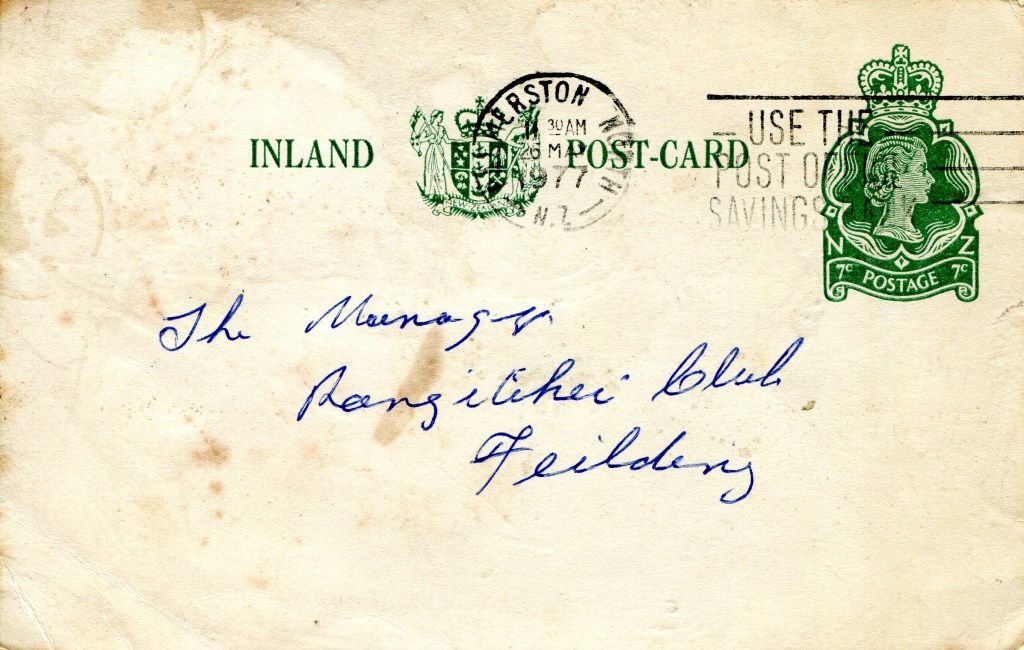 INLAND POST-CARD
MERSTON NORTH
11 30AM
26
1977
N.Z.
NEW ZEALAND
USE THE
POST
SAVINGS
N Z
7c POSTAGE 7c
The Manager
Rangitikei Club
Feilding